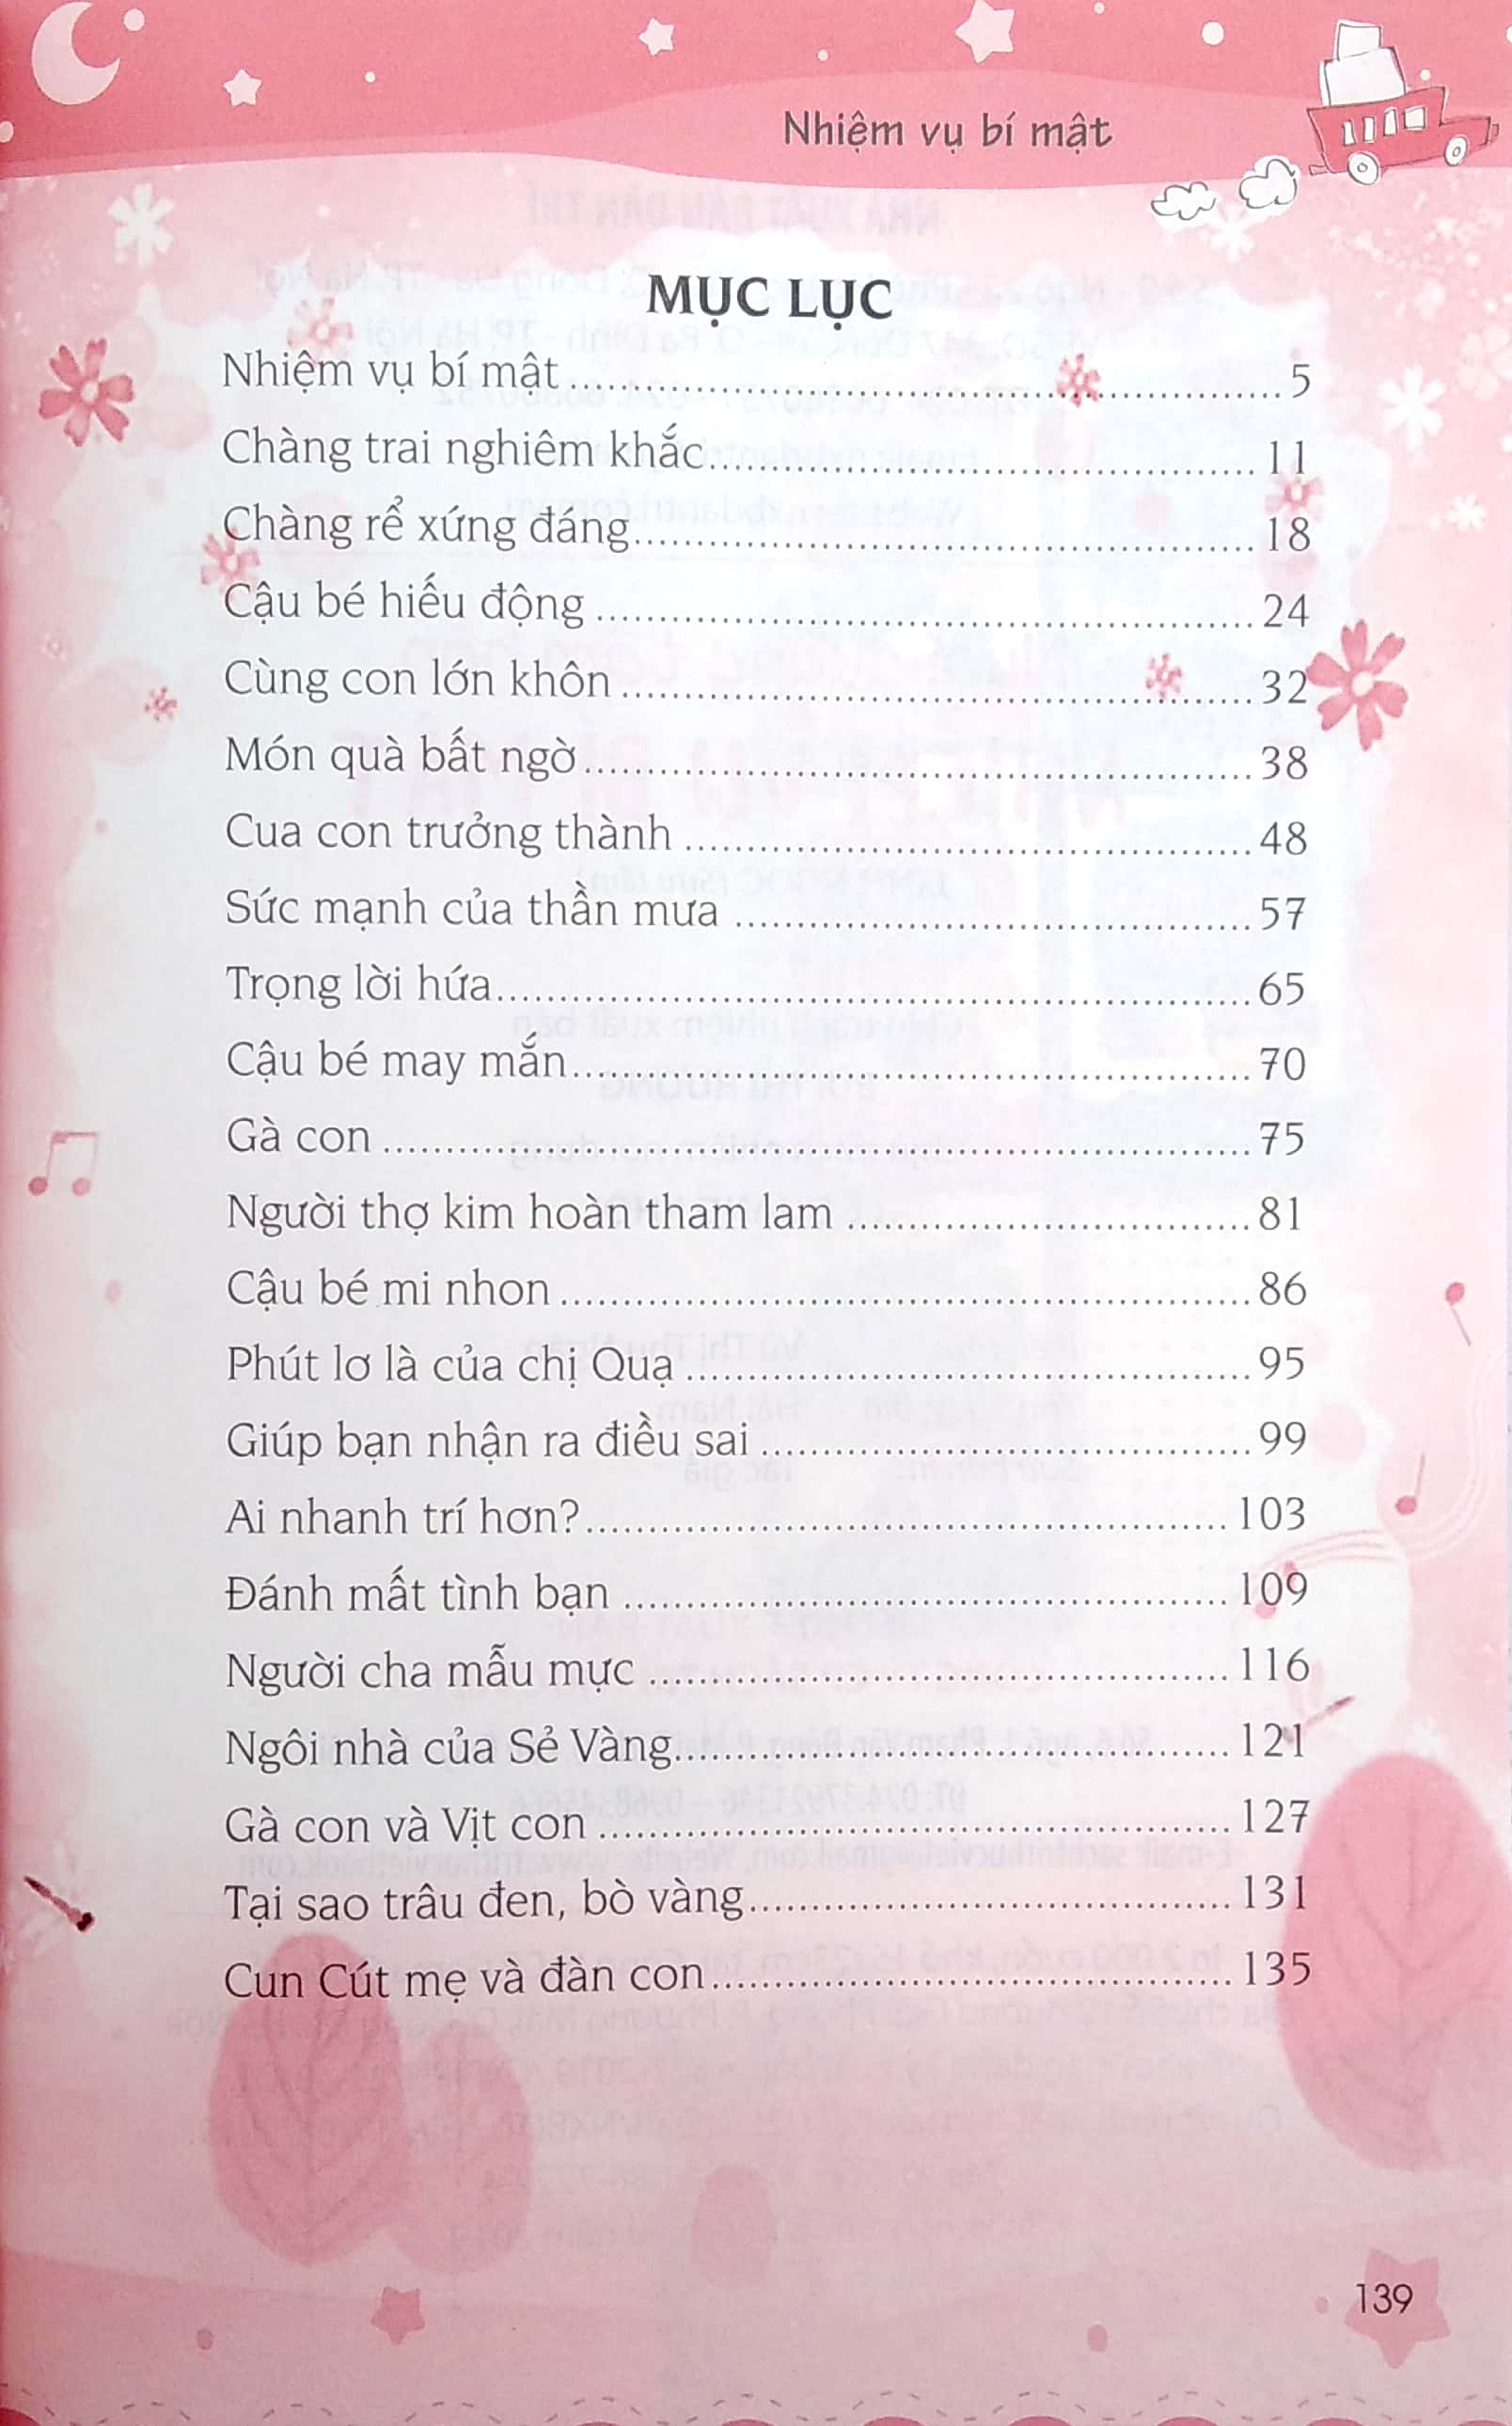 Nhiệm vụ bí mật
MỤC LỤC
Nhiệm vụ bí mật ........................................ 5
Chàng trai nghiêm khắc........................................ 11
Chàng rể xứng đáng........................................ 18
Cậu bé hiếu động ........................................ 24
Cùng con lớn khôn ........................................ 32
Món quà bất ngờ........................................ 38
Cua con trưởng thành ........................................ 48
Sức mạnh của thần mưa ........................................ 57
Trọng lời hứa........................................ 65
Cậu bé may mắn........................................ 70
Gà con ........................................ 75
Người thợ kim hoàn tham lam ........................................ 81
Cậu bé mi nhon ........................................ 86
Phút lơ là của chị Quạ ........................................ 95
Giúp bạn nhận ra điều sai ........................................ 99
Ai nhanh trí hơn?........................................ 103
Đánh mất tình bạn ........................................ 109
Người cha mẫu mực ........................................ 116
Ngôi nhà của Sẻ Vàng........................................ 121
Gà con và Vịt con ........................................ 127
Tại sao trâu đen, bò vàng........................................ 131
Cun Cút mẹ và đàn con........................................ 135
139